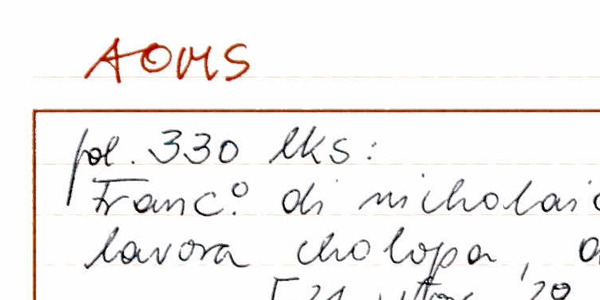 AOMS
fol. 330 lks:
Franc.º di nicholaio
lavora cholopa,